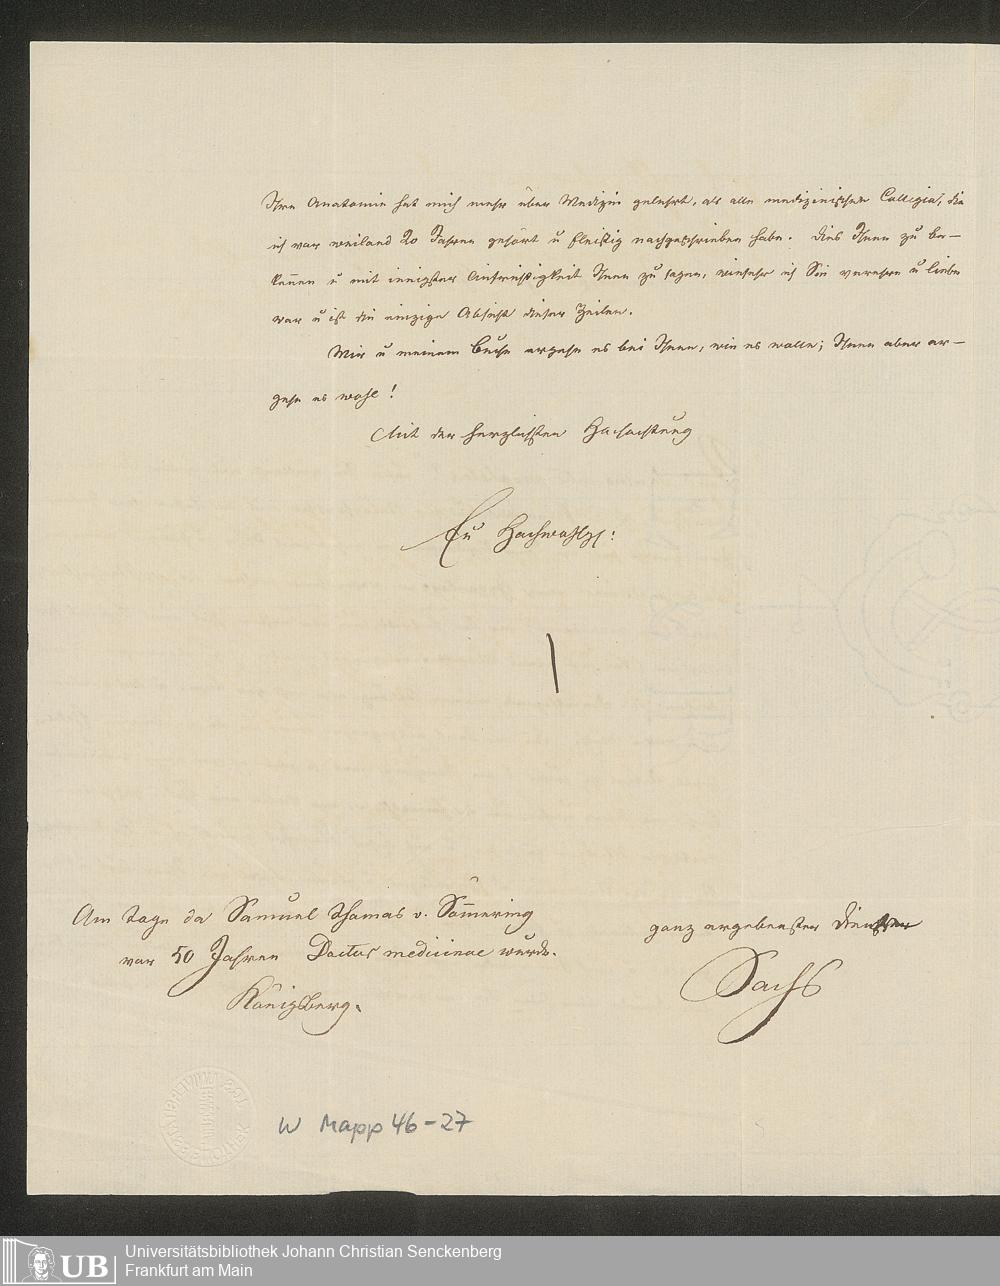 Ihre Anatomie hat mich mehr über Medizin gelehrt, als alle medizinischen Collegia, die
ich vor weiland 20 Jahren gehört u fleißig nachgeschrieben habe. Dies Ihnen zu be–
kennen u mit innigster Aufrichtigkeit Ihnen zu sagen, wie sehr ich Sie verehre u liebe
war u ist die einzige Absicht dieser Zeilen.
Mir u meinem Buche ergehe es bei Ihnen, wie es wolle; Ihnen aber er–
gehe es wohl!
Mit der herzlichsten Hochachtung
Eu Hochwohlg:
Am Tage da Samuel Thomas v. Sömering
vor 50 Jahren Doctor medicinae wurde.
Königsberg.
ganz ergebenster Diener
Sachs
W Mapp 46-27
UB
Universitätsbibliothek Johann Christian Senckenberg
Frankfurt am Main